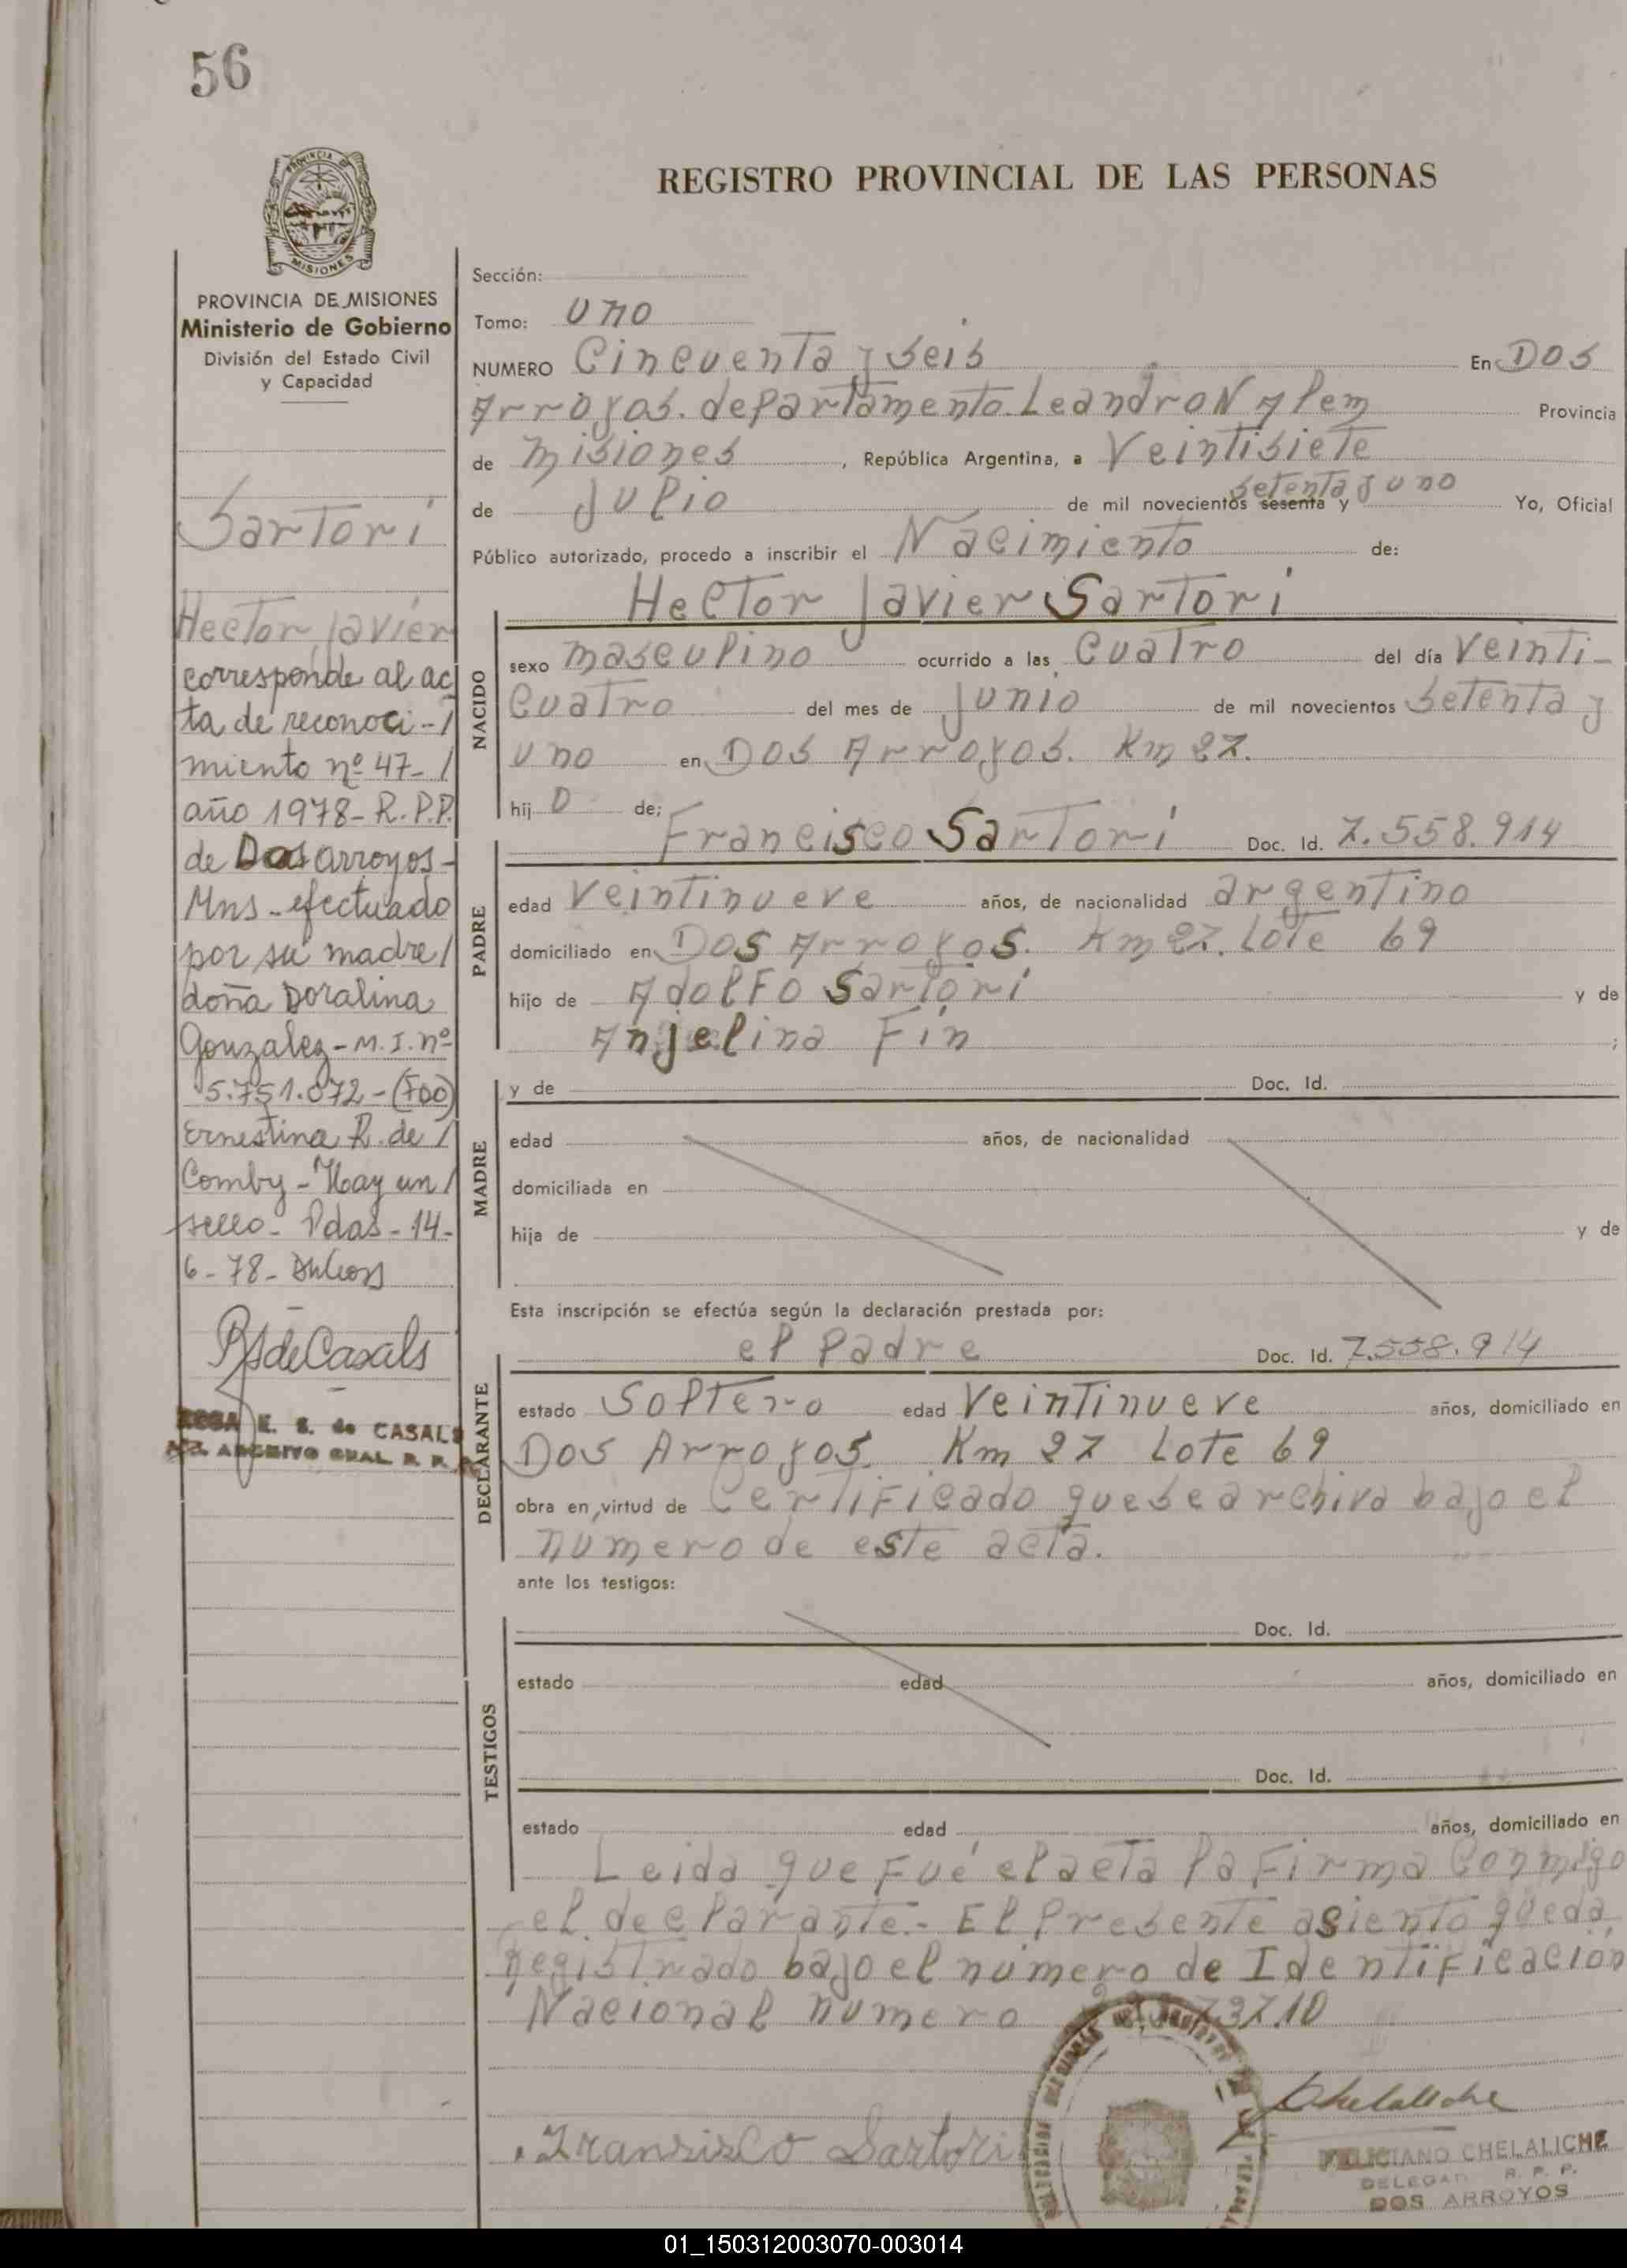 56
PROVINCIA DE
MISIONES
REGISTRO PROVINCIAL DE LAS PERSONAS
PROVINCIA DE MISIONES
Ministerio de Gobierno
División del Estado Civil
y Capacidad
Sartori
Hector Javier
corresponde al ac
ta de reconoci-/
miento nº 47-/
año 1978- R.P.P.
de Dos arroyos-
Mns-efectuado
por su madre/
doña Doralina
Gonzalez-M.I.nº
5.751.072-(Fdo)
Ernestina R. de/
Comby-Hay un/
sello- Pdas-14-
6-78-
RSdeCasals
ROSA E. S. de CASALS
ARCHIVO GRAL R. P. P.
Sección:
Tomo: uno
NUMERO Cincuenta y seis En Dos
Arroyos. departamento Leandro N Alem Provincia
de Misiones, República Argentina, a Veintisiete
de Julio de mil novecientos sesenta y setenta y uno Yo, Oficial
Público autorizado, procedo a inscribir el Nacimiento de:
Hector Javier Sartori
NACIDO
sexo masculino ocurrido a las Cuatro del día Veinti-
Cuatro del mes de junio de mil novecientos Setenta y
uno en Dos Arroyos. Km 27.
hij o de; Francisco Sartori Doc. Id. 7.558.914
PADRE
edad Veintinueve años, de nacionalidad argentino
domiciliado en Dos Arroyos. Km 27. Lote 69
hijo de Adolfo Sartori y de
Anjelina Fin ;
MADRE
y de Doc. Id.
edad años, de nacionalidad
domiciliada en
hija de y de
Esta inscripción se efectúa según la declaración prestada por:
el Padre Doc. Id. 7.558.914
DECLARANTE
estado Soltero edad Veintinueve años, domiciliado en
Dos Arroyos. Km 27 Lote 69
obra en virtud de Certificado que se archiva bajo el
numero de este acta.
ante los testigos:
TESTIGOS
Doc. Id.
estado edad años, domiciliado en
Doc. Id.
estado edad años, domiciliado en
Leida que Fué el acta la Firma Conmigo
el declarante.- El Presente asiento queda
Registrado bajo el número de Identificación
Nacional numero
Fransisco Sartori
Chelaliche
FELICIANO CHELALICHE
DELEGADO R. P. P.
DOS ARROYOS
01_150312003070-003014